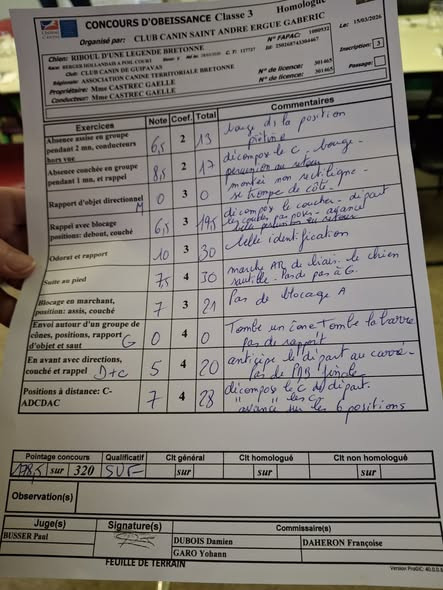 CONCOURS D'OBEISSANCE Classe 3 Homologué
Organisé par: CLUB CANIN SAINT ANDRE ERGUE GABERIC Le: 15/03/2026
Chien: RIBOUL D'UNE LEGENDE BRETONNE N° FAPAC:
Race: BERGER HOLLANDAIS A POIL COURT
Club: CLUB CANIN DE GUIPAVAS Inscription: 3
Régionale: ASSOCIATION CANINE TERRITORIALE BRETONNE Passage:
Propriétaire: Mme CASTREC GAELLE N° de licence: 301465
Conducteur: Mme CASTREC GAELLE N° de licence: 301465
Exercices Note Coef. Total Commentaires
Absence assise en groupe pendant 2 mn, conducteurs hors vue 6,5 2 13 bouge ds la position
Absence couchée en groupe pendant 1 mn, et rappel 8,5 2 17 décompose le C - bouge - au retour
Rapport d'objet directionnel M 0 3 0 montée non rectiligne - se trompe de côté -
Rappel avec blocage positions: debout, couché 6,5 3 19,5 décompose le coucher - départ
Odorat et rapport 10 3 30 belle identification
Suite au pied 7,5 4 30 marche AR de biais. le chien sautille - Pas de pas à G.
Blocage en marchant, position: assis, couché 7 3 21 Pas de blocage A
Envoi autour d'un groupe de cônes, positions, rapport d'objet et saut G 0 4 0 Tombe un cône Tombe la barre pas de rapport
En avant avec directions, couché et rappel D+C 5 4 20 anticipe le départ au carré - pas de finale
Positions à distance: C-ADCDAC 7 4 28 décompose le C de départ.
" les C
avance sur les 6 positions
Pointage concours Qualificatif Clt général Clt homologué Clt non homologué
178,5 sur 320 SUF sur sur sur
Observation(s)
Juge(s) Signature(s) Commissaire(s)
BUSSER Paul DUBOIS Damien DAHERON Françoise
GARO Yohann
FEUILLE DE TERRAIN